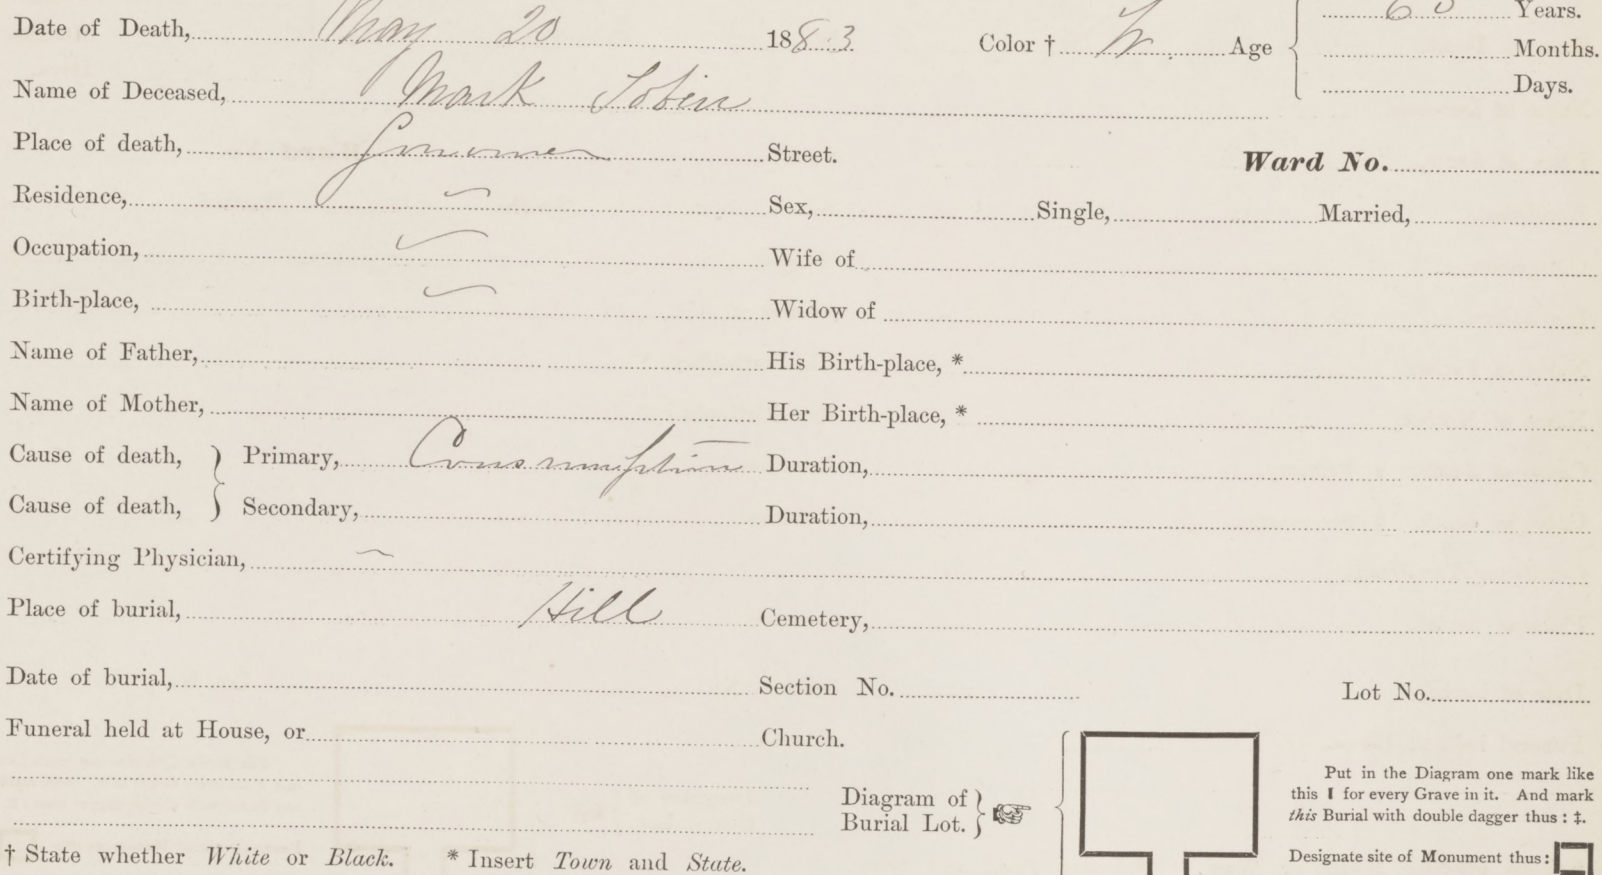 Date of Death, May 20 1883 Color † W. Age 60 Years.
Months.
Name of Deceased, Mark Tobin Days.
Place of death, Street. Ward No.
Residence, Sex, Single, Married,
Occupation, Wife of
Birth-place, Widow of
Name of Father, His Birth-place, *
Name of Mother, Her Birth-place, *
Cause of death, } Primary, Consumption Duration,
Cause of death, } Secondary, Duration,
Certifying Physician,
Place of burial, Hill Cemetery,
Date of burial, Section No. Lot No.
Funeral held at House, or Church.
Diagram of Burial Lot. }
Put in the Diagram one mark like
this I for every Grave in it. And mark
this Burial with double dagger thus : ‡.
Designate site of Monument thus :
† State whether White or Black. * Insert Town and State.